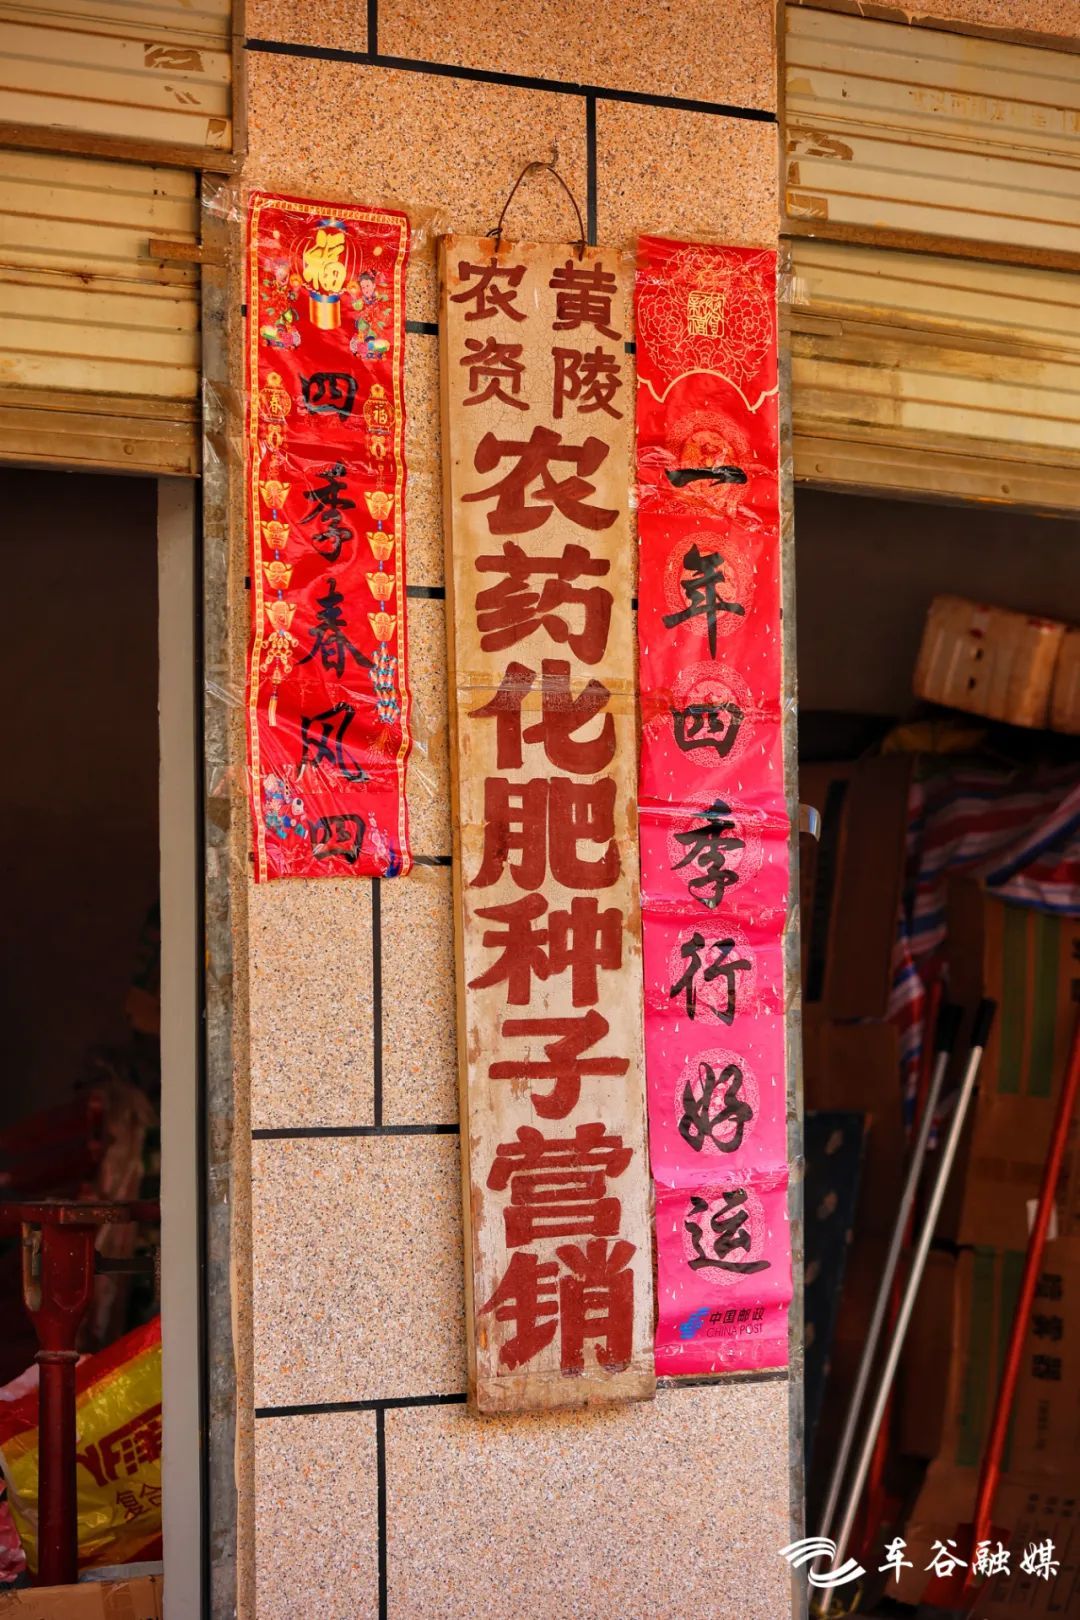 福
春
福
四季春风四
黄陵
农资
农药化肥种子营销
一年四季行好运
中国邮政
CHINA POST
复合
车谷融媒